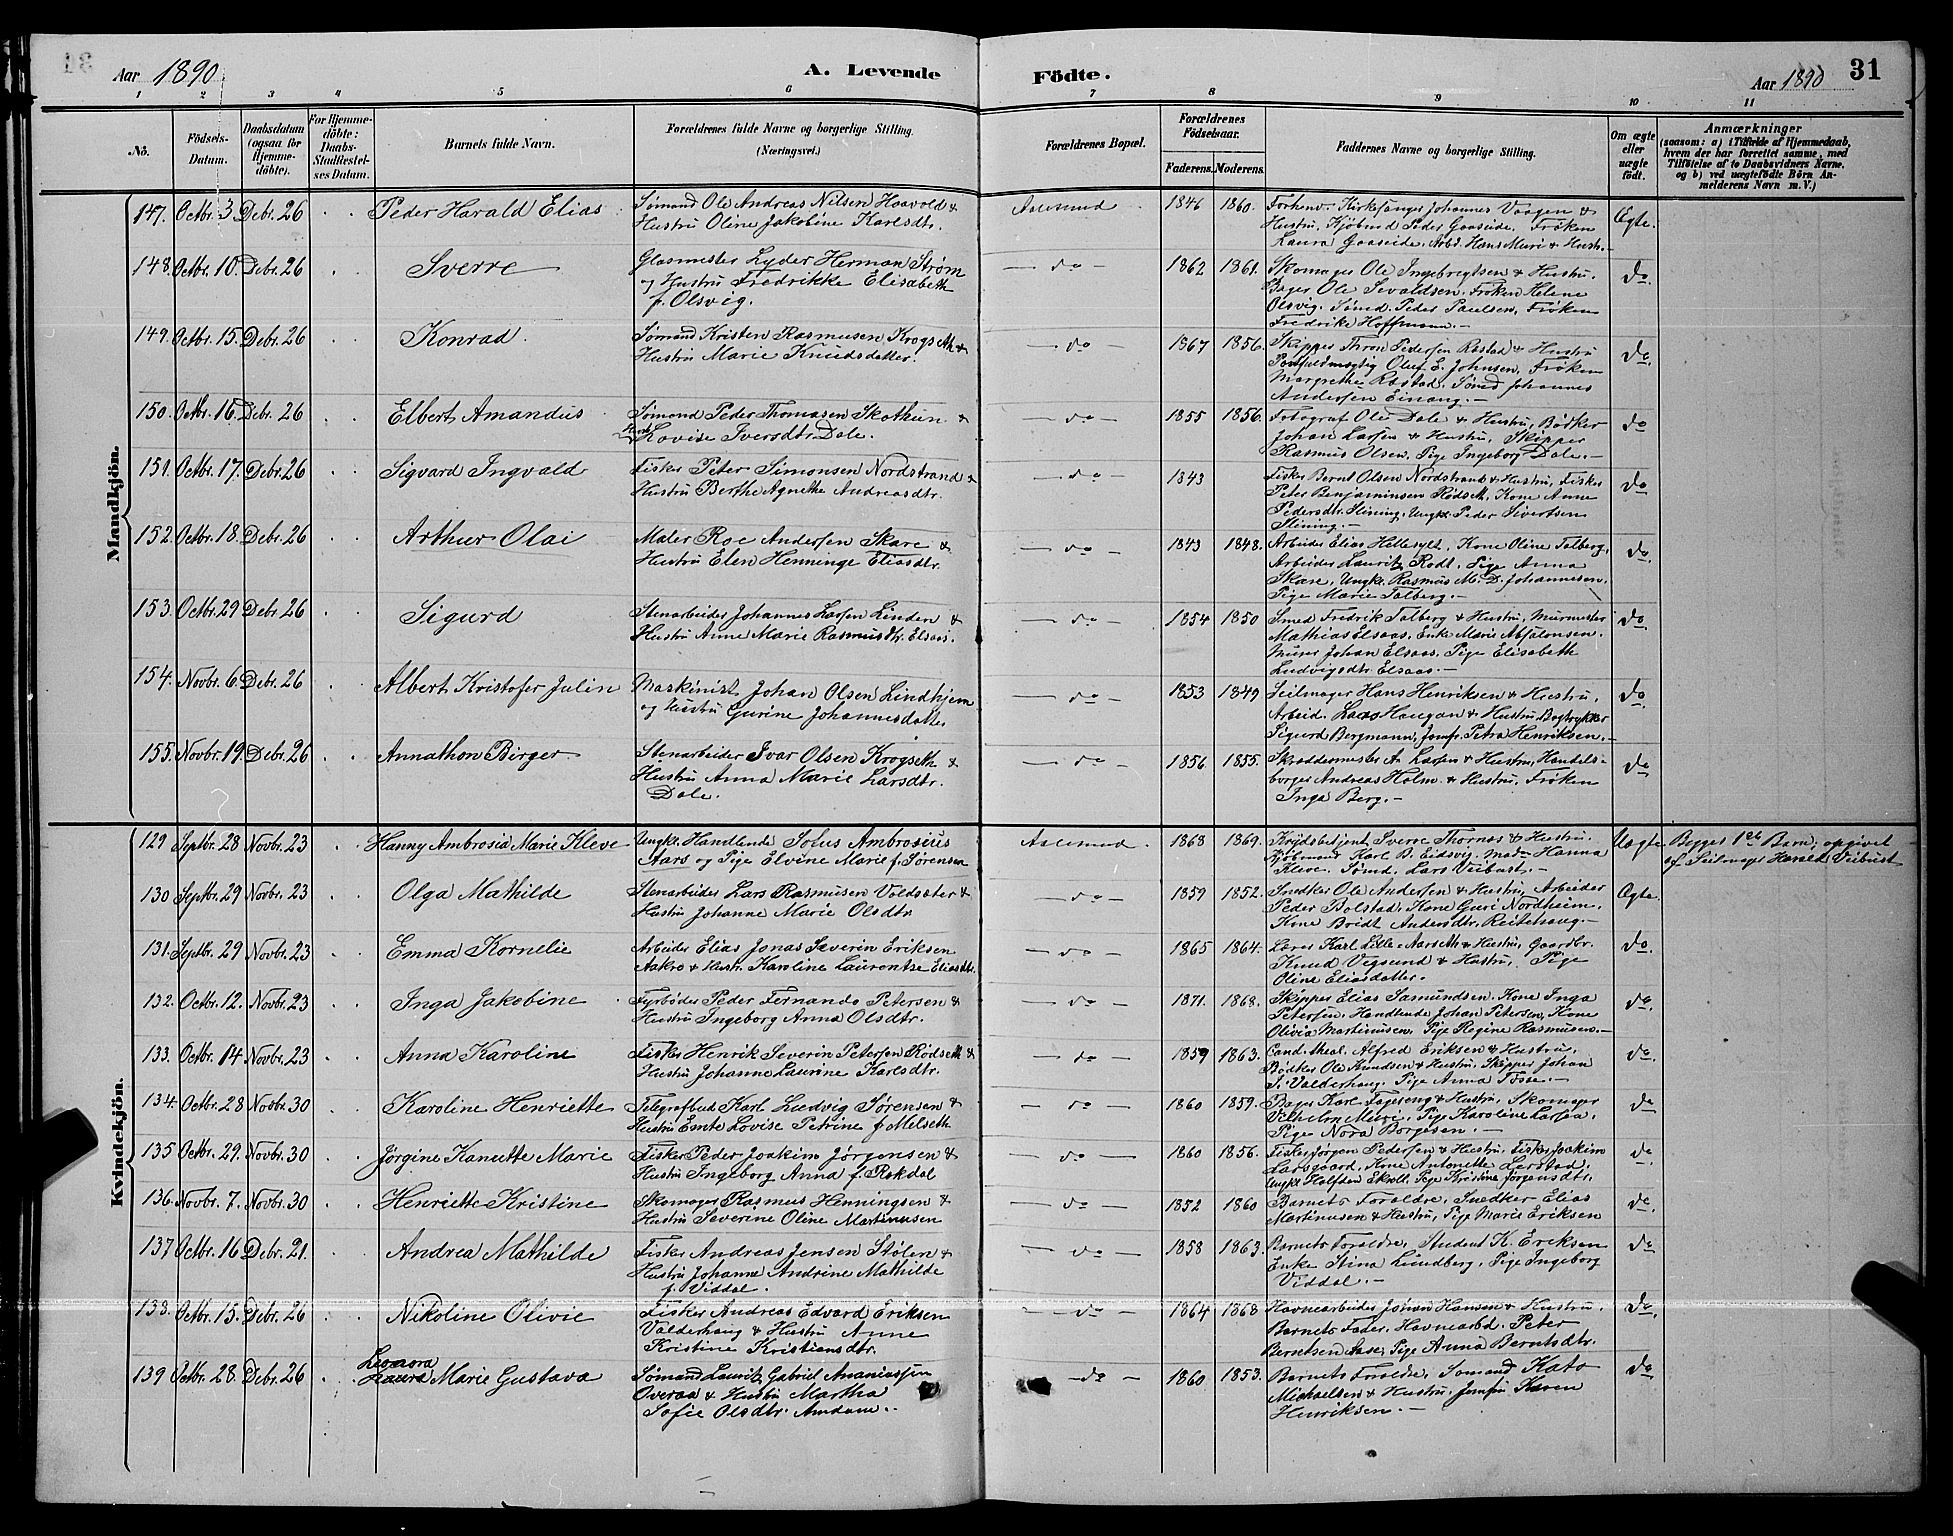 31
Aar 1890
A. Levende
Födte.
Aar 1890
31
1 2 3 4 5 6 7 8 9 10 11
No.
Födsels-
Datum.
Daabsdatum
(ogsaa for
Hjemme-
döbte).
For Hjemme-
döbte:
Daabs-
Stadfæstel-
ses Datum.
Barnets fulde Navn.
Forældrenes fulde Navne og borgerlige Stilling.
(Næringsvei.)
Forældrenes Bopæl.
Forældrenes
Födselsaar.
Faderens. Moderens.
Faddernes Navne og borgerlige Stilling.
Om ægte
eller
uægte
födt.
Anmærkninger
(saasom: a) i Tilfælde af Hjemmedaab,
hvem der har forrettet samme, med
Tilföielse af to Daabsvidners Navne,
og b) ved uægtefödte Börn An-
melderens Navn m. V.)
Mandkjön.
147. Octbr. 3. Debr. 26 Peder Harald Elias
Sømand Ole Andreas Nilsen Haavold &
Hustru Oline Jakobine Karlsdtr.
Aalesund 1846 1860.
Forhenv. Kirkesanger Johannes Vaagen &
Hustru, Kjøbmd Peder Gaaseide, Frøken
Laura Gaaseide, Arbd. Hans Muri & Hustr.
Ægte.
148. Octbr. 10. Debr. 26 Sverre
Glasmester Lyder Herman Strøm
og Hustru Fredrikke Elisabeth
f. Olsvig.
do 1862 1861.
Skomager Ole Ingebrigtsen & Hustru.
Bager Ole Sevaldsen, Frøken Helene
Olsvig. Sømd. Peder Paulsen, Frøken
Fredrike Hoffmann.
do
149. Octbr. 15. Debr. 26 Konrad
Sømand Kristen Rasmusen Krogseth &
Hustru Marie Knudsdatter.
do 1867 1856.
Skipper Thron Pedersen Røstad & Hustru
Oluf E. Johnsen, Frøken
Margrethe Røstad. Sømd Johannes
Andersen Einang.
do
150. Octbr. 16. Debr. 26 Elbert Amandus
Sømand Peder Thomasen Skothun &
Hust. Lovise Iversdtr. Dale.
do 1855 1856.
Fotograf Ole Dale & Hustru, Bødker
Johan Larsen & Hustru, Skipper
Rasmus Olsen, Pige Ingeborg Dale.
do
151. Octbr. 17. Debr. 26 Sigvard Ingvald
Fisker Peter Simonsen Nordstrand &
Hustru Berthe Agnethe Andreasdtr.
do 1843
Fisker Bernt Olsen Nordstrand & Hustru, Fisker
Peter Benjaminsen Rødseth, Kone Anne
Pedersdtr. Slining, Ungk. Peder Sivertsen
Slining.
do
152. Octbr. 18. Debr. 26 Arthur Olai
Maler Roe Andersen Skare &
Hustru Elen Henninge Eliasdtr.
do 1843 1848.
Arbeider Elias Hellesylt, Kone Oline Talberg,
Arbeider Laurits Rodt, Pige Anna
Skare, Ungk. Rasmus M. D. Johannesen,
Pige Marie Talberg.
do
153. Octbr. 29 Debr. 26 Sigurd
Stenarbeider Johannes Larsen Linden &
Hustru Anne Marie Rasmusdtr. Elsaas.
do 1854 1850
Smed Fredrik Talberg & Hustru, Murmester
Mathias Elsaas, Enke Marie Absalonsen.
Murer Johan Elsaas, Pige Elisabeth
Ludvigsdtr Elsaas.
do
154. Novbr. 6. Debr. 26 Albert Kristofer Julin
Maskinist Johan Olsen Lindhjem
og Hustru Gurine Johannesdatter
do 1853 1849
Seilmager Hans Henriksen & Hustru,
Arbeid. Lars Haugan & Hustru, Bogtrykker
Sigurd Bergmann, Jomfr. Petra Henriksen.
do
155. Novbr. 19. Debr. 26 Annathon Birger
Stenarbeider Ivar Olsen Krogseth &
Hustru Anna Marie Larsdtr.
Dale.
do 1856 1855.
Skræddermester A. Larsen & Hustru, Handels-
borger Andreas Holm & Hustru, Frøken
Inga Berg.
do
Kvindekjön.
129 Septbr. 28 Novbr. 23 Hanny Ambrosia Marie Kleve
Ungk. Handlende Sofus Ambrosius
Aars og Pige Elvine Marie f. Sørensen
Aalesund 1868 1869.
Krydsbetjent Sverre Thornæs & Hustru.
Kjøbmand Karl B. Eidsvig, Mad. Hanna
Kleve. Sømd. Lars Veibust.
Uægte
Begges 1ste Barn, opgivet
af Seilmager Harald Veibust
130 Septbr. 29 Novbr. 23 Olga Mathilde
Stenarbeider Lars Rasmusen Voldsæter &
Hustru Johanne Marie Olsdtr.
do 1859 1852.
Snedker Ole Andersen & Hustru, Arbeider
Peder Bolstad, Kone Guri Nordheim,
Kone Bridt Andersdtr. Reitehaug.
Ægte.
131. Septbr. 29 Novbr. 23 Emma Kornelie
Arbeider Elias Jonas Severin Eriksen
Aakre & Hustr. Karoline Laurentse Eliasdtr.
do 1865 1864.
Lærer Karl Lille-Aarseth & Hustru, Gaardbr.
Knud Vegsund & Hustru, Pige
Olina Eliasdatter.
do.
132. Octbr. 12. Novbr. 23 Inga Jakobine
Fyrbøder Peder Fernando Petersen &
Hustru Ingeborg Anna Olsdtr.
do 1871. 1868.
Skipper Elias Samundsen. Kone Inga
Petersen, Handlende Johan Petersen, Kone
Olivia Martinusen, Pige Regine Rasmusen.
do
133. Octbr. 14 Novbr. 23 Anna Karoline
Fisker Henrik Severin Petersen Rødseth &
Hustru Johanne Laurine Karlsdtr.
do 1859 1863.
Cand. theol. Alfred Eriksen & Hustru,
Bødker Ole Knudsen & Hustru, Skipper Johan
J. Valderhaug, Pige Anna Tosse.
do.
134. Octbr. 28 Novbr. 30 Karoline Henriette
Telegrafbud Karl Ludvig Sørensen &
Hustru Emte Lovise Petrine f Melseth
do 1860 1859.
Bager Karl Fagereng & Hustru, Skomager
Vilhelm Muri, Pige Karoline Larsen,
Pige Nora Borgesen.
do
135 Octbr. 29. Novbr. 30 Jørgine Kanutte Marie
Fisker Peder Joakim Jørgensen &
Hustru Ingeborg Anna f. Rekdal
do 1860 1856.
Fisker Jørgen Pedersen & Hustru, Fisker Joakim
Larsgaard, Kone Antonette Lerstad,
Ungk. Halfdan Ekroll. Pige Kristine Jørgensdtr.
do
136. Novbr. 7. Novbr. 30 Henriette Kristine
Skomager Rasmus Henningsen &
Hustru Severine Oline Martinusen
do 1852 1860
Barnets Forældre, Snedker Elias
Martinusen & Hustru, Pige Marie Eriksen
do.
137 Octbr. 16 Debr. 21. Andrea Mathilde
Fisker Andreas Jensen Stølen &
Hustru Johanne Andrine Mathilde
f. Viddal.
do 1858 1863.
Barnets Forældre, Student K. Eriksen
Enke Stina Lundberg, Pige Ingeborg
Viddal.
do
138. Octbr. 15. Debr. 26 Nikoline Olivie
Fisker Andreas Edvard Eriksen
Valderhaug & Hustru Anne
Kristine Kristiansdtr.
do 1864 1868
Havnearbeider Jørgen Hansen & Hustru.
Barnets Fader, Havnearbd. Peter
Berntsen Aase, Pige Anna Berntsdtr.
do.
139 Octbr. 28. Debr. 26 Leonora
Laura Marie Gustava
Sømand Laurits Gabriel Ananiassen
Overaa & Hustru Martha
Sofie Olsdtr. Amdam.
do 1860 1853.
Barnets Forældre, Sømand Kato
Michaelsen & Hustru, Jomfru Karen
Henriksen.
do